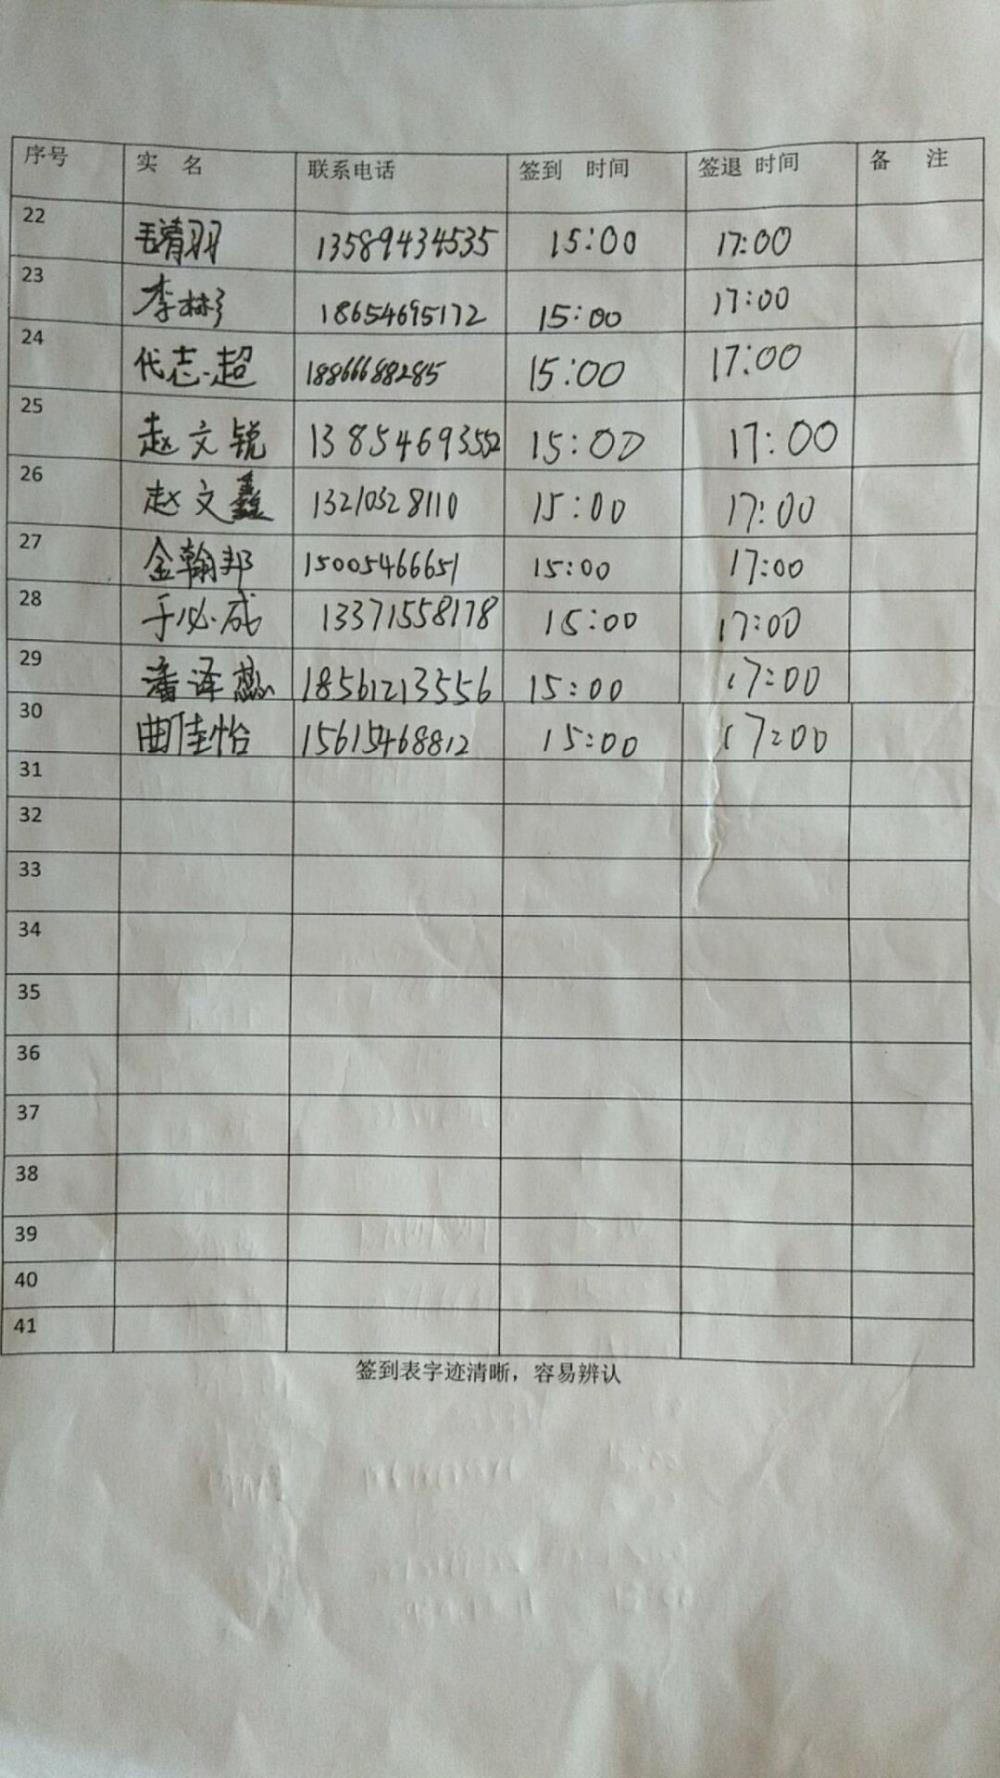 序号 实 名 联系电话 签到 时间 签退 时间 备 注
22 毛清羽 13589434535 15:00 17:00
23 李彬 18654695172 15:00 17:00
24 代志超 18866688285 15:00 17:00
25 赵文锐 13854693552 15:00 17:00
26 赵文鑫 13210328110 15:00 17:00
27 金翰邦 15005466651 15:00 17:00
28 于必成 13371558178 15:00 17:00
29 潘泽 18561213556 15:00 17:00
30 曲佳怡 15615468812 15:00 17:00
31
32
33
34
35
36
37
38
39
40
41
签到表字迹清晰，容易辨认